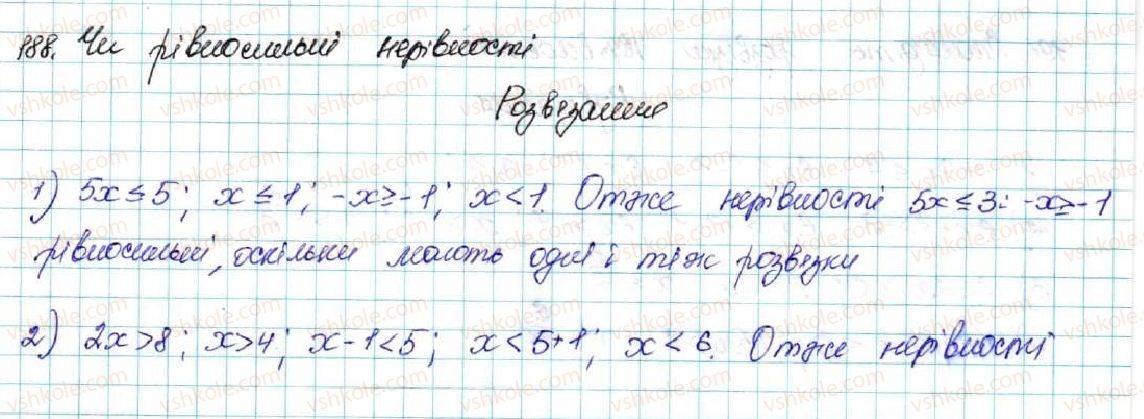 188. Чи рівносильні нерівності
Розвязання
1) 5x ≤ 5; x ≤ 1; -x ≥ -1; x < 1. Отже нерівності 5x ≤ 3 і -x ≥ -1
рівносильні, оскільки мають одні і тіж розвязки
2) 2x > 8; x > 4; x - 1 < 5; x < 5 + 1; x < 6. Отже нерівності